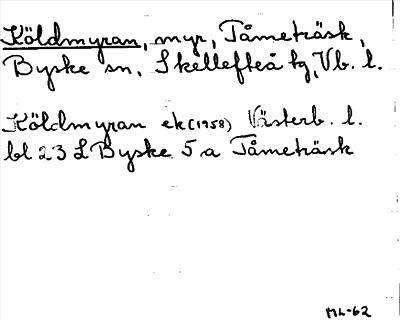 Köldmyran, myr, Tåmeträsk,
Byske sn, Skellefteå tg, Vb. l.
Köldmyran ek (1958) Västerb. l.
bl 23 L Byske 5 a Tåmeträsk
ML-62